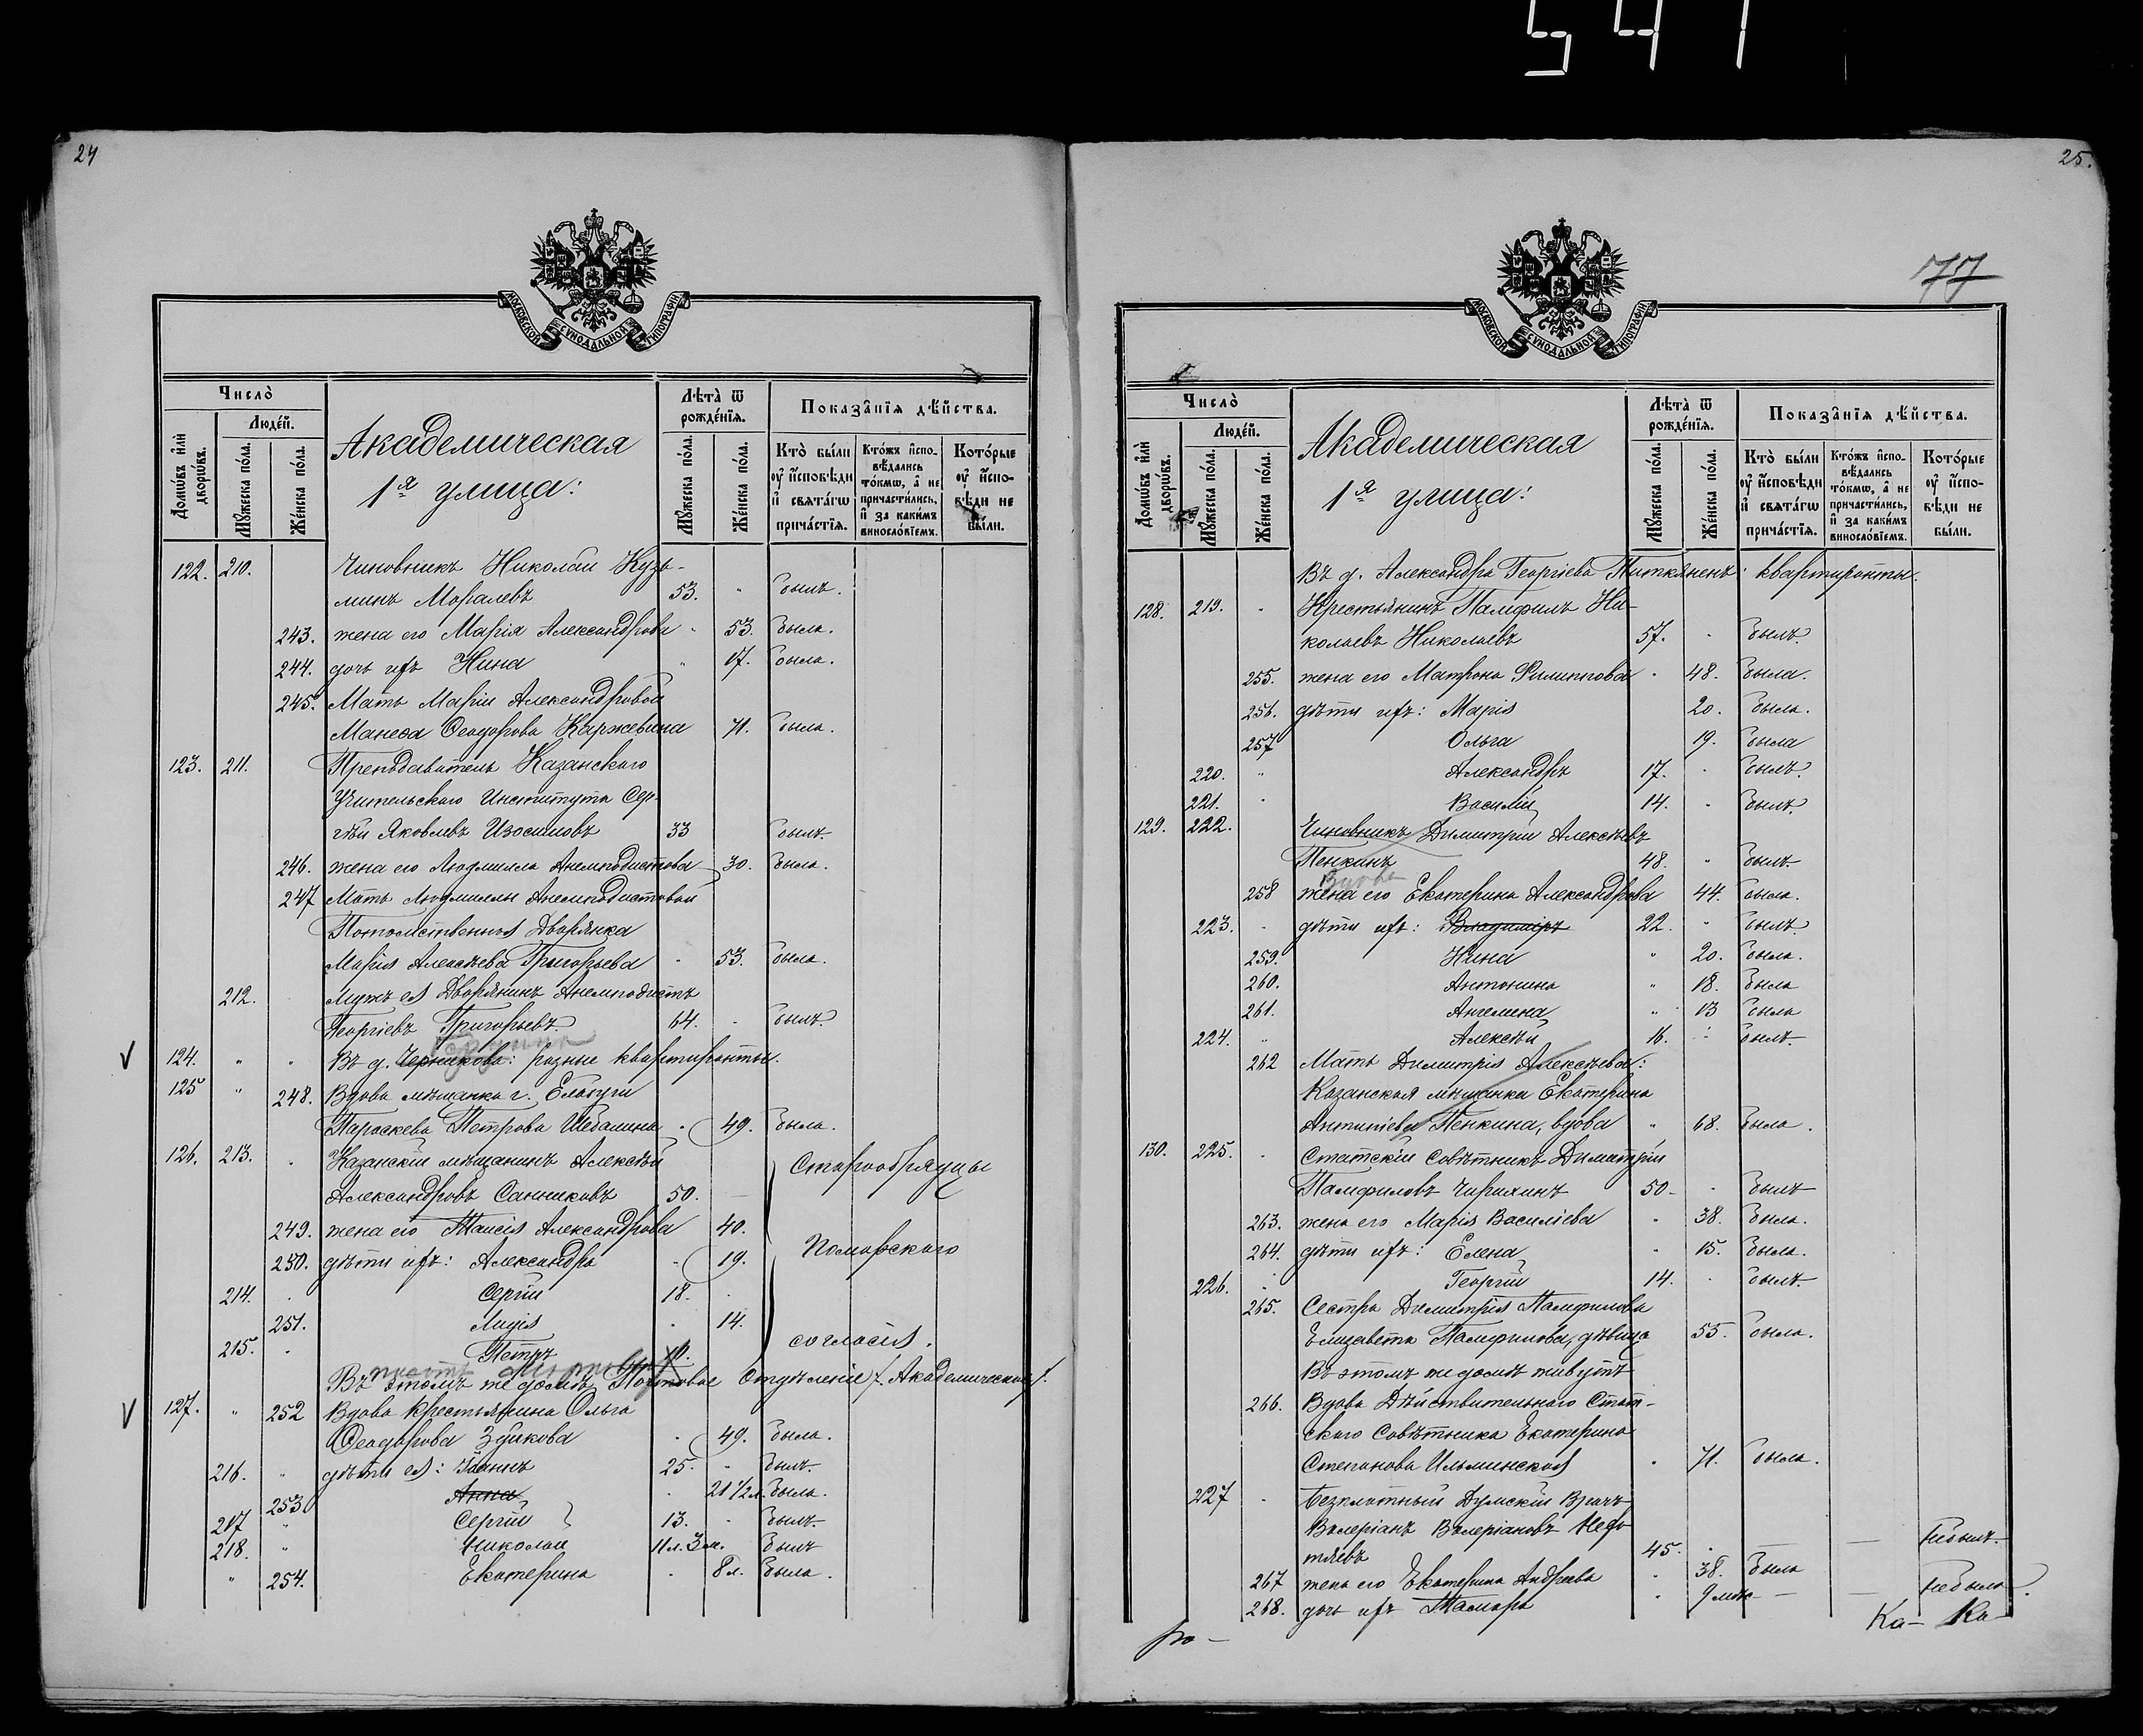 541
24
МОСКОВСКОЙ СѴНОДАЛЬНОЙ ТИПОГРАФІИ
Число̀
Домѡ́въ и҆лѝ дворѡ́въ.
Люде́й.
Мꙋ́жеска по́ла.
Же́нска по́ла.
Академическая
1я улица:
Лѣ́та ѿ рожде́нїѧ.
Мꙋ́жеска по́ла.
Же́нска по́ла.
Показа̑нїѧ дѣ́йства.
Кто̀ были ᲂу҆ и҆́сповѣди и҆ свѧта́гѡ прича́стїѧ.
Кто́жъ и҆спо-вѣ́дались то́кмѡ, а҆ не причасти́лись, и҆ за каки́мъ винослѡ́вїемъ.
Кото́рые ᲂу҆ и҆́спо-вѣди не бы́ли.
122. 210. Чиновникъ Николай Кузь-
минъ Моралевъ 53. " былъ.
243. жена его Марія Александрова " 53. была.
244. дочь ихъ Нина " 17. была.
245. Мать Маріи Александровой
Манефа Ѳеодорова Каржевина 71. была.
123. 211. Преподаватель Казанскаго
Учительскаго Института Сер-
гѣй Яковлевъ Изосимовъ 33 былъ.
246. жена его Людмилла Анемподистова 30. была.
247 Мать Людмиллы Анемподистовой
Потомственная Дворянка
Марія Алексѣева Григорьева " 53. была.
212. мужъ ея Дворянинъ Анемподистъ
Георгіевъ Григорьевъ 64. " былъ.
124. " " Въ д. Черникова: разные квартиранты.
125 " 248. Вдова мѣщанка г. Елабуги
Параскева Петрова Шебалина " 49. была.
126. 213. " Казанскій мѣщанинъ Алексѣй Старообрядцы
Александровъ Санниковъ 50. —
249. жена его Таисія Александрова 40.
250. дѣти ихъ: Александра " 19. Поморскаго
214. " Сергій 18. "
251. Лидія " 14.
215. " Петръ 10. согласія.
Въ этомъ же домѣ Почтовое Отдѣленіе /. Академическое /.
127. " 252 Вдова крестьянина Ольга
Ѳеодорова Зуйкова " 49. была.
216. " дѣти ея: Іоаннъ 25. " былъ.
253 Анна " 21 1/2 л. была.
217 " Сергій 13. " былъ.
218. " Николай 11 л. 3 м. былъ
" 254. Екатерина " 8 л. была.
25.
77
МОСКОВСКОЙ СѴНОДАЛЬНОЙ ТИПОГРАФІИ
Число̀
Домѡ́въ и҆лѝ дворѡ́въ.
Люде́й.
Мꙋ́жеска по́ла.
Же́нска по́ла.
Академическая
1я улица:
Лѣ́та ѿ рожде́нїѧ.
Мꙋ́жеска по́ла.
Же́нска по́ла.
Показа̑нїѧ дѣ́йства.
Кто̀ были ᲂу҆ и҆́сповѣди и҆ свѧта́гѡ прича́стїѧ.
Кто́жъ и҆спо-вѣ́дались то́кмѡ, а҆ не причасти́лись, и҆ за каки́мъ винослѡ́вїемъ.
Кото́рые ᲂу҆ и҆́спо-вѣди не бы́ли.
Въ д. Александра Георгіева Питкяненъ: квартиранты.
128. 219. " Крестьянинъ Памфилъ Ни-
колаевъ Николаевъ 57. " былъ.
255. жена его Матрона Филиппова " 48. была.
256. дѣти ихъ: Марія 20. была.
257 Ольга 19. была
220. " Александръ 17. " былъ.
221. " Василій 14. " былъ.
129. 222. Чиновникъ Димитрій Алексѣевъ
Пенкинъ 48. " былъ.
Вдова
258 жена его Екатерина Александрова 44. была.
223. " дѣти ихъ: Владиміръ 22. " былъ.
259. Нина " 20. была.
260. Антонина " 18. была
261. Ангелина " 13 была
224. " Алексѣй 16. " былъ.
262 Мать Димитрія Алексѣева:
Казанская мѣщанка Екатерина
Антипіева Пенкина, вдова " 68. была.
130. 225. " Статскій совѣтникъ Димитрій
Памфиловъ Чирихинъ 50. " былъ
263. жена его Марія Василіева " 38. была.
264. дѣти ихъ: Елена " 15. была.
226. " Георгій 14. " былъ.
265. Сестра Димитрія Памфилова
Елизавета Памфилова, дѣвица 55. была.
Въ этомъ же домѣ живутъ
266. Вдова Дѣйствительнаго Стат-
скаго Совѣтника Екатерина
Степанова Ильминская " 71. была.
227 " Безплатный Думскій Врачъ
Валеріанъ Валеріановъ Нефо
тяевъ 45. " — небылъ.
267 жена его Екатерина Андреева " 38. была
268. дочь ихъ Тамара " 9 мѣс — — небыла.
ро- Ка- Ка-